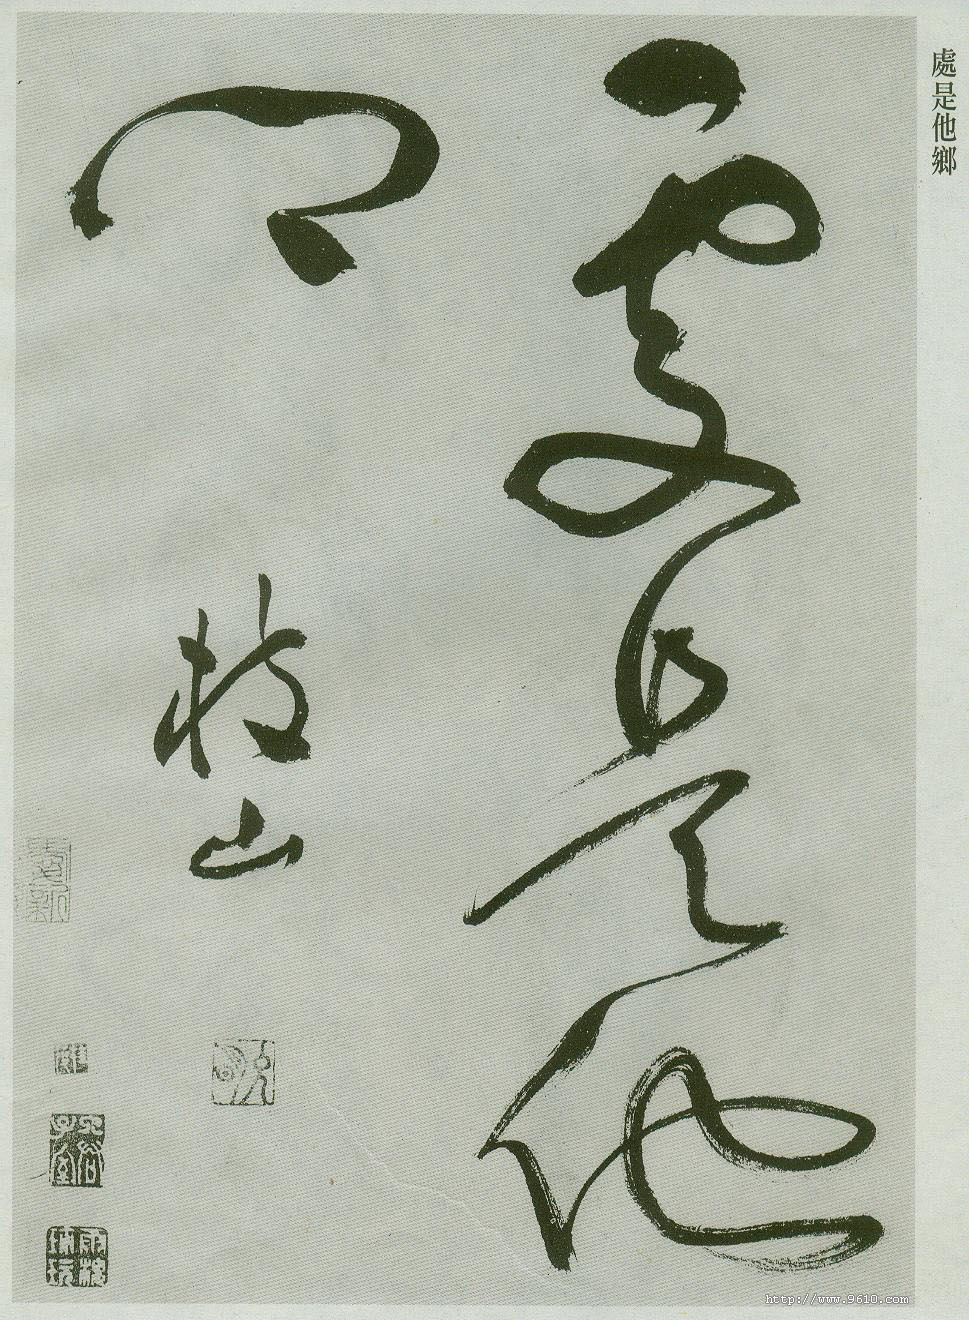 處是他鄉
處是他
鄉
枝山
http://www.9610.com